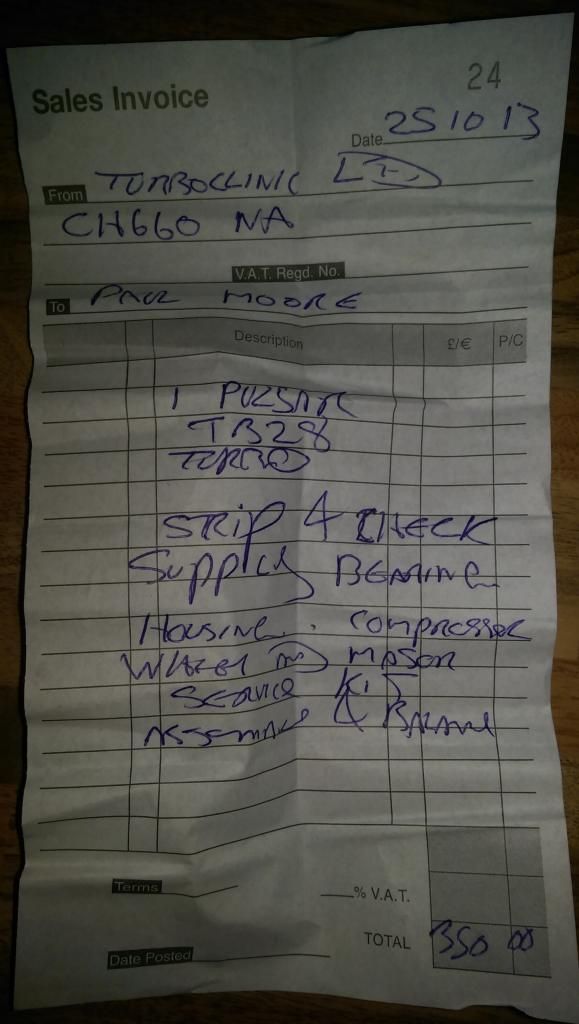 24
Sales Invoice
Date 25 10 13
From TURBOCLINIC LTD
CH660 NA
V.A.T. Regd. No.
To PAUL MOORE
Description £/€ P/C
1 PULSAR
TB28
TURBO
STRIP & CHECK
SUPPLY BEARING
HOUSING. COMPRESSOR
WHEEL AND MAJOR
SERVICE KIT
ASSEMBLE & BALANCE
Terms % V.A.T.
TOTAL 350 00
Date Posted